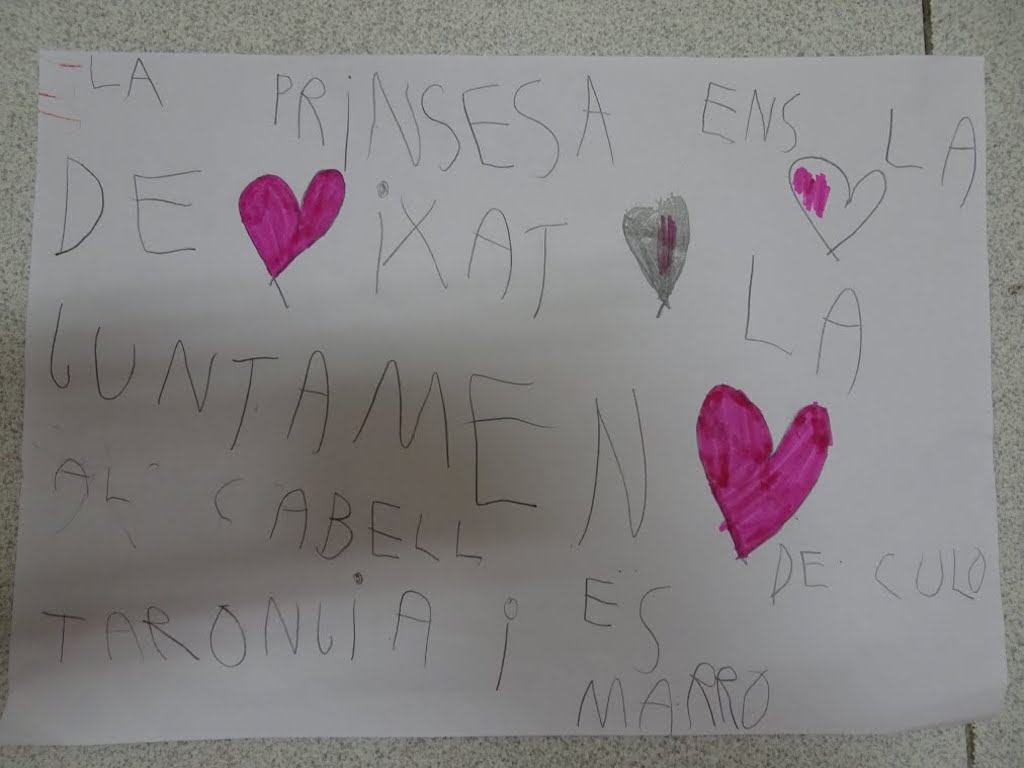 LA PRiNSESA ENS LA
DE iXAT LA
GUNTAMEN
AL CABELL DE CULO
TARONGiA i ES
MARRO